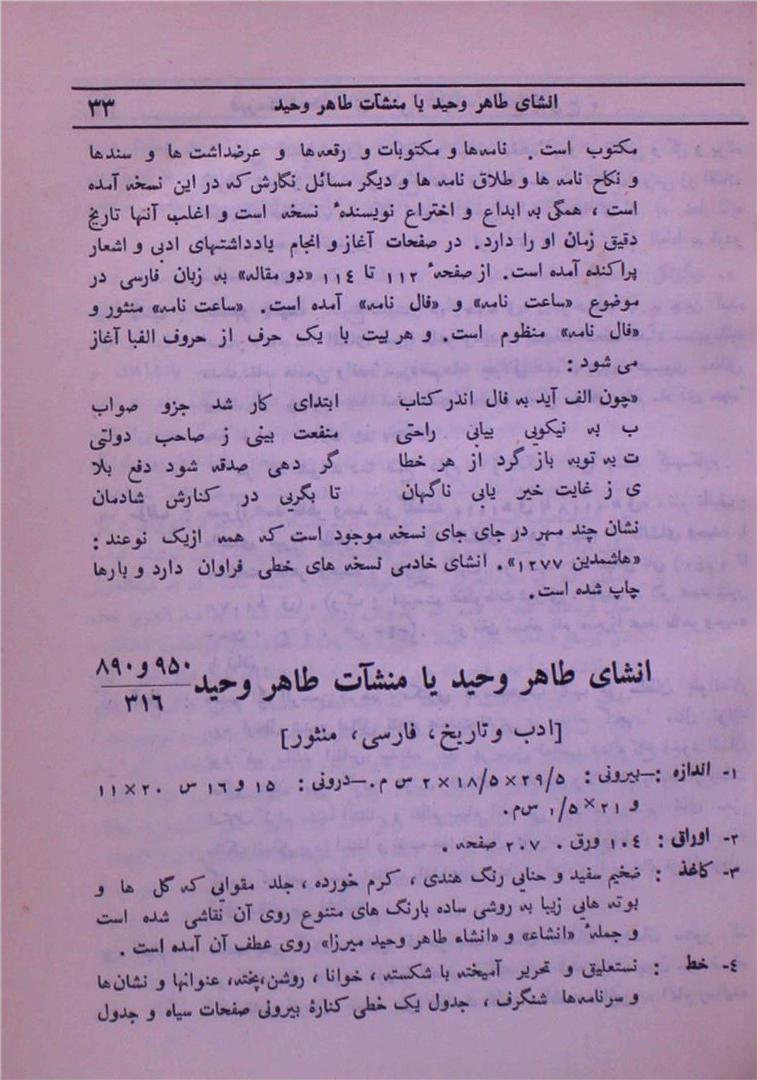 انشای طاهر وحید یا منشآت طاهر وحید ۳۳
مکتوب است. نامه‌ها و مکتوبات و رقعه‌ها و عرضداشت ها و سندها
و نکاح نامه ها و طلاق نامه ها و دیگر مسائل نگارش که در این نسخه آمده
است، همگی به ابداع و اختراع نویسندهٔ نسخه است و اغلب آنها تاریخ
دقیق زمان او را دارد. در صفحات آغاز و انجام یادداشتهای ادبی و اشعار
پراکنده آمده است. از صفحهٔ ۱۱۲ تا ۱۱٤ «دو مقاله» به زبان فارسی در
موضوع «ساعت نامه» و «فال نامه» آمده است. «ساعت نامه» منثور و
«فال نامه» منظوم است. و هر بیت با یک حرف از حروف الفبا آغاز
می شود :
«چون الف آید به فال اندر کتاب ابتدای کار شد جزو صواب
ب به نیکویی بیابی راحتی منفعت بینی ز صاحب دولتی
ت به توبه باز گرد از هر خطا گر دهی صدقه شود دفع بلا
ی ز غایت خیر یابی ناگهان تا بگریی در کنارش شادمان
نشان چند مهر در جای جای نسخه موجود است که همه ازیک نوعند :
«هاشمدین ۱۲۷۷». انشای خادمی نسخه های خطی فراوان دارد و بارها
چاپ شده است.
انشای طاهر وحید یا منشآت طاهر وحید ۹۵۰ و ۸۹۰
۳۱۶
[ادب وتاریخ، فارسی، منثور]
۱- اندازه :—بیرونی : ۲۹/۵×۱۸/۵×۲ س م.—درونی : ۱۵ و ۱۶ س ۲۰×۱۱
و ۲۱×۱/۵ س‌م.
۲- اوراق : ۱۰٤ ورق. ۲۰۷ صفحه.
۳- کاغذ : ضخیم سفید و حنایی رنگ هندی، کرم خورده، جلد مقوایی که گل ها و
بوته هایی زیبا به روشی ساده بارنگ های متنوع روی آن نقاشی شده است
و جملهٔ «انشاء» و «انشاء طاهر وحید میرزا» روی عطف آن آمده است.
٤- خط : نستعلیق و تحریر آمیخته با شکسته، خوانا، روشن،پخته، عنوانها و نشان‌ها
و سرنامه‌ها شنگرف، جدول یک خطی کنارهٔ بیرونی صفحات سیاه و جدول